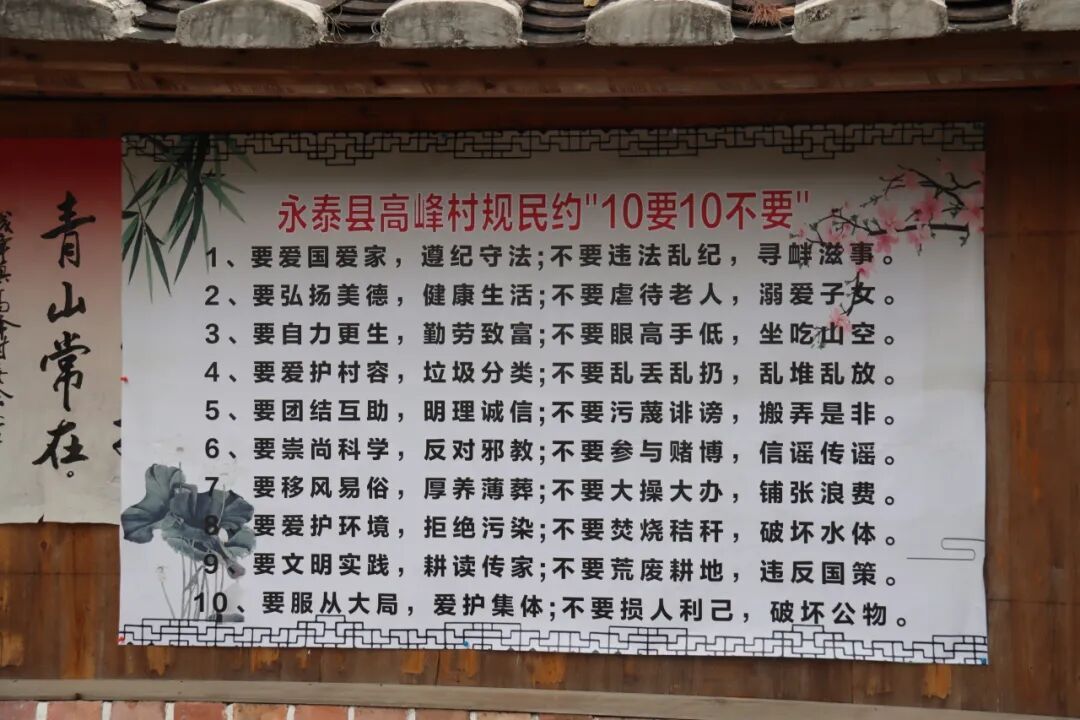 永泰县高峰村规民约"10要10不要"
1、要爱国爱家，遵纪守法;不要违法乱纪，寻衅滋事。
2、要弘扬美德，健康生活;不要虐待老人，溺爱子女。
3、要自力更生，勤劳致富;不要眼高手低，坐吃山空。
4、要爱护村容，垃圾分类;不要乱丢乱扔，乱堆乱放。
5、要团结互助，明理诚信;不要污蔑诽谤，搬弄是非。
6、要崇尚科学，反对邪教;不要参与赌博，信谣传谣。
7、要移风易俗，厚养薄葬;不要大操大办，铺张浪费。
8、要爱护环境，拒绝污染;不要焚烧秸秆，破坏水体。
9、要文明实践，耕读传家;不要荒废耕地，违反国策。
10、要服从大局，爱护集体;不要损人利己，破坏公物。
青山常在。